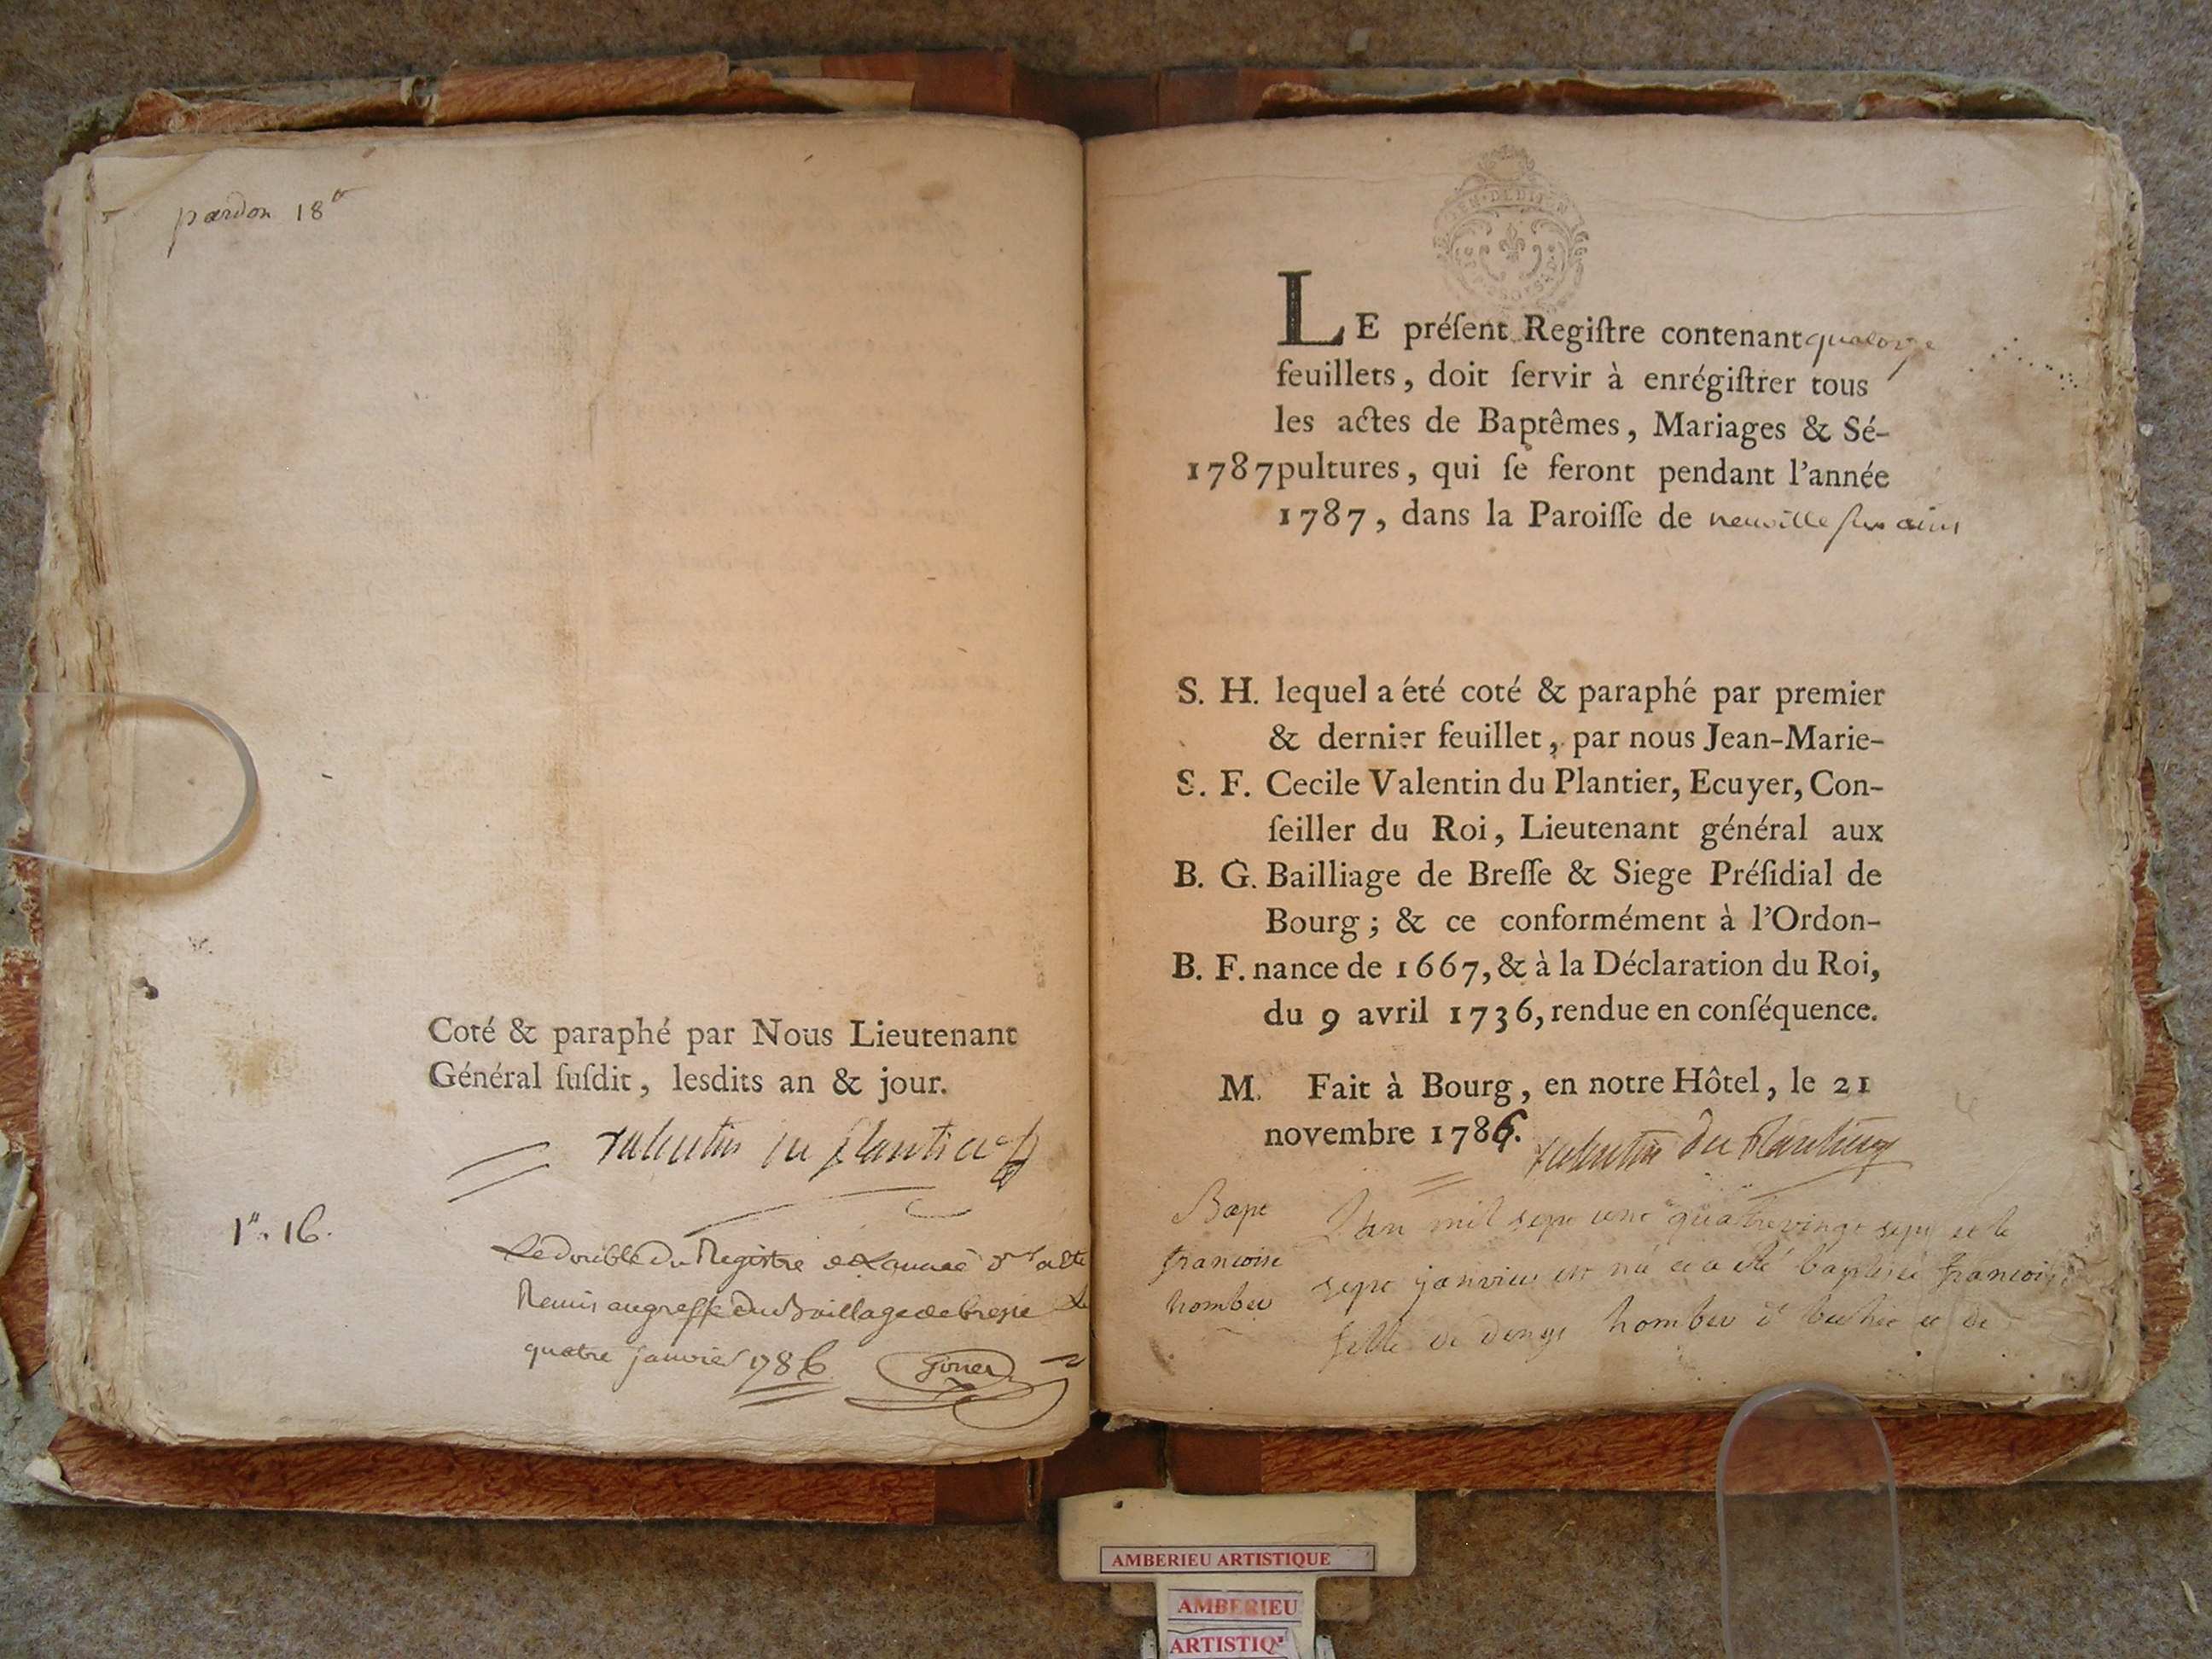 pardon 18
Coté & paraphé par Nous Lieutenant
Général ſuſdit, lesdits an & jour.
Valentin du plantier
1. 16.
Le double du Registre de L'année
Remis au greffe du Bailliage de bresse Le
quatre janvier 1786
LE préſent Regiſtre contenant quatorze
feuillets, doit ſervir à enrégiſtrer tous
les actes de Baptêmes, Mariages & Sé-
1787 pultures, qui ſe feront pendant l'année
1787, dans la Paroiſſe de neuville sur ains
S. H. lequel a été coté & paraphé par premier
& dernier feuillet, par nous Jean-Marie-
S. F. Cecile Valentin du Plantier, Ecuyer, Con-
ſeiller du Roi, Lieutenant général aux
B. G. Bailliage de Breſſe & Siege Préſidial de
Bourg; & ce conformément à l'Ordon-
B. F. nance de 1667, & à la Déclaration du Roi,
du 9 avril 1736, rendue en conſéquence.
M. Fait à Bourg, en notre Hôtel, le 21
novembre 1786.
Valentin du Plantier
Bapt
francoise
homber
L'an mil sept cent quatrevingt sept et le
sept janvier est né et a été baptisée francoise
fille de denys hombert et de
AMBERIEU ARTISTIQUE
AMBERIEU
ARTISTIQ